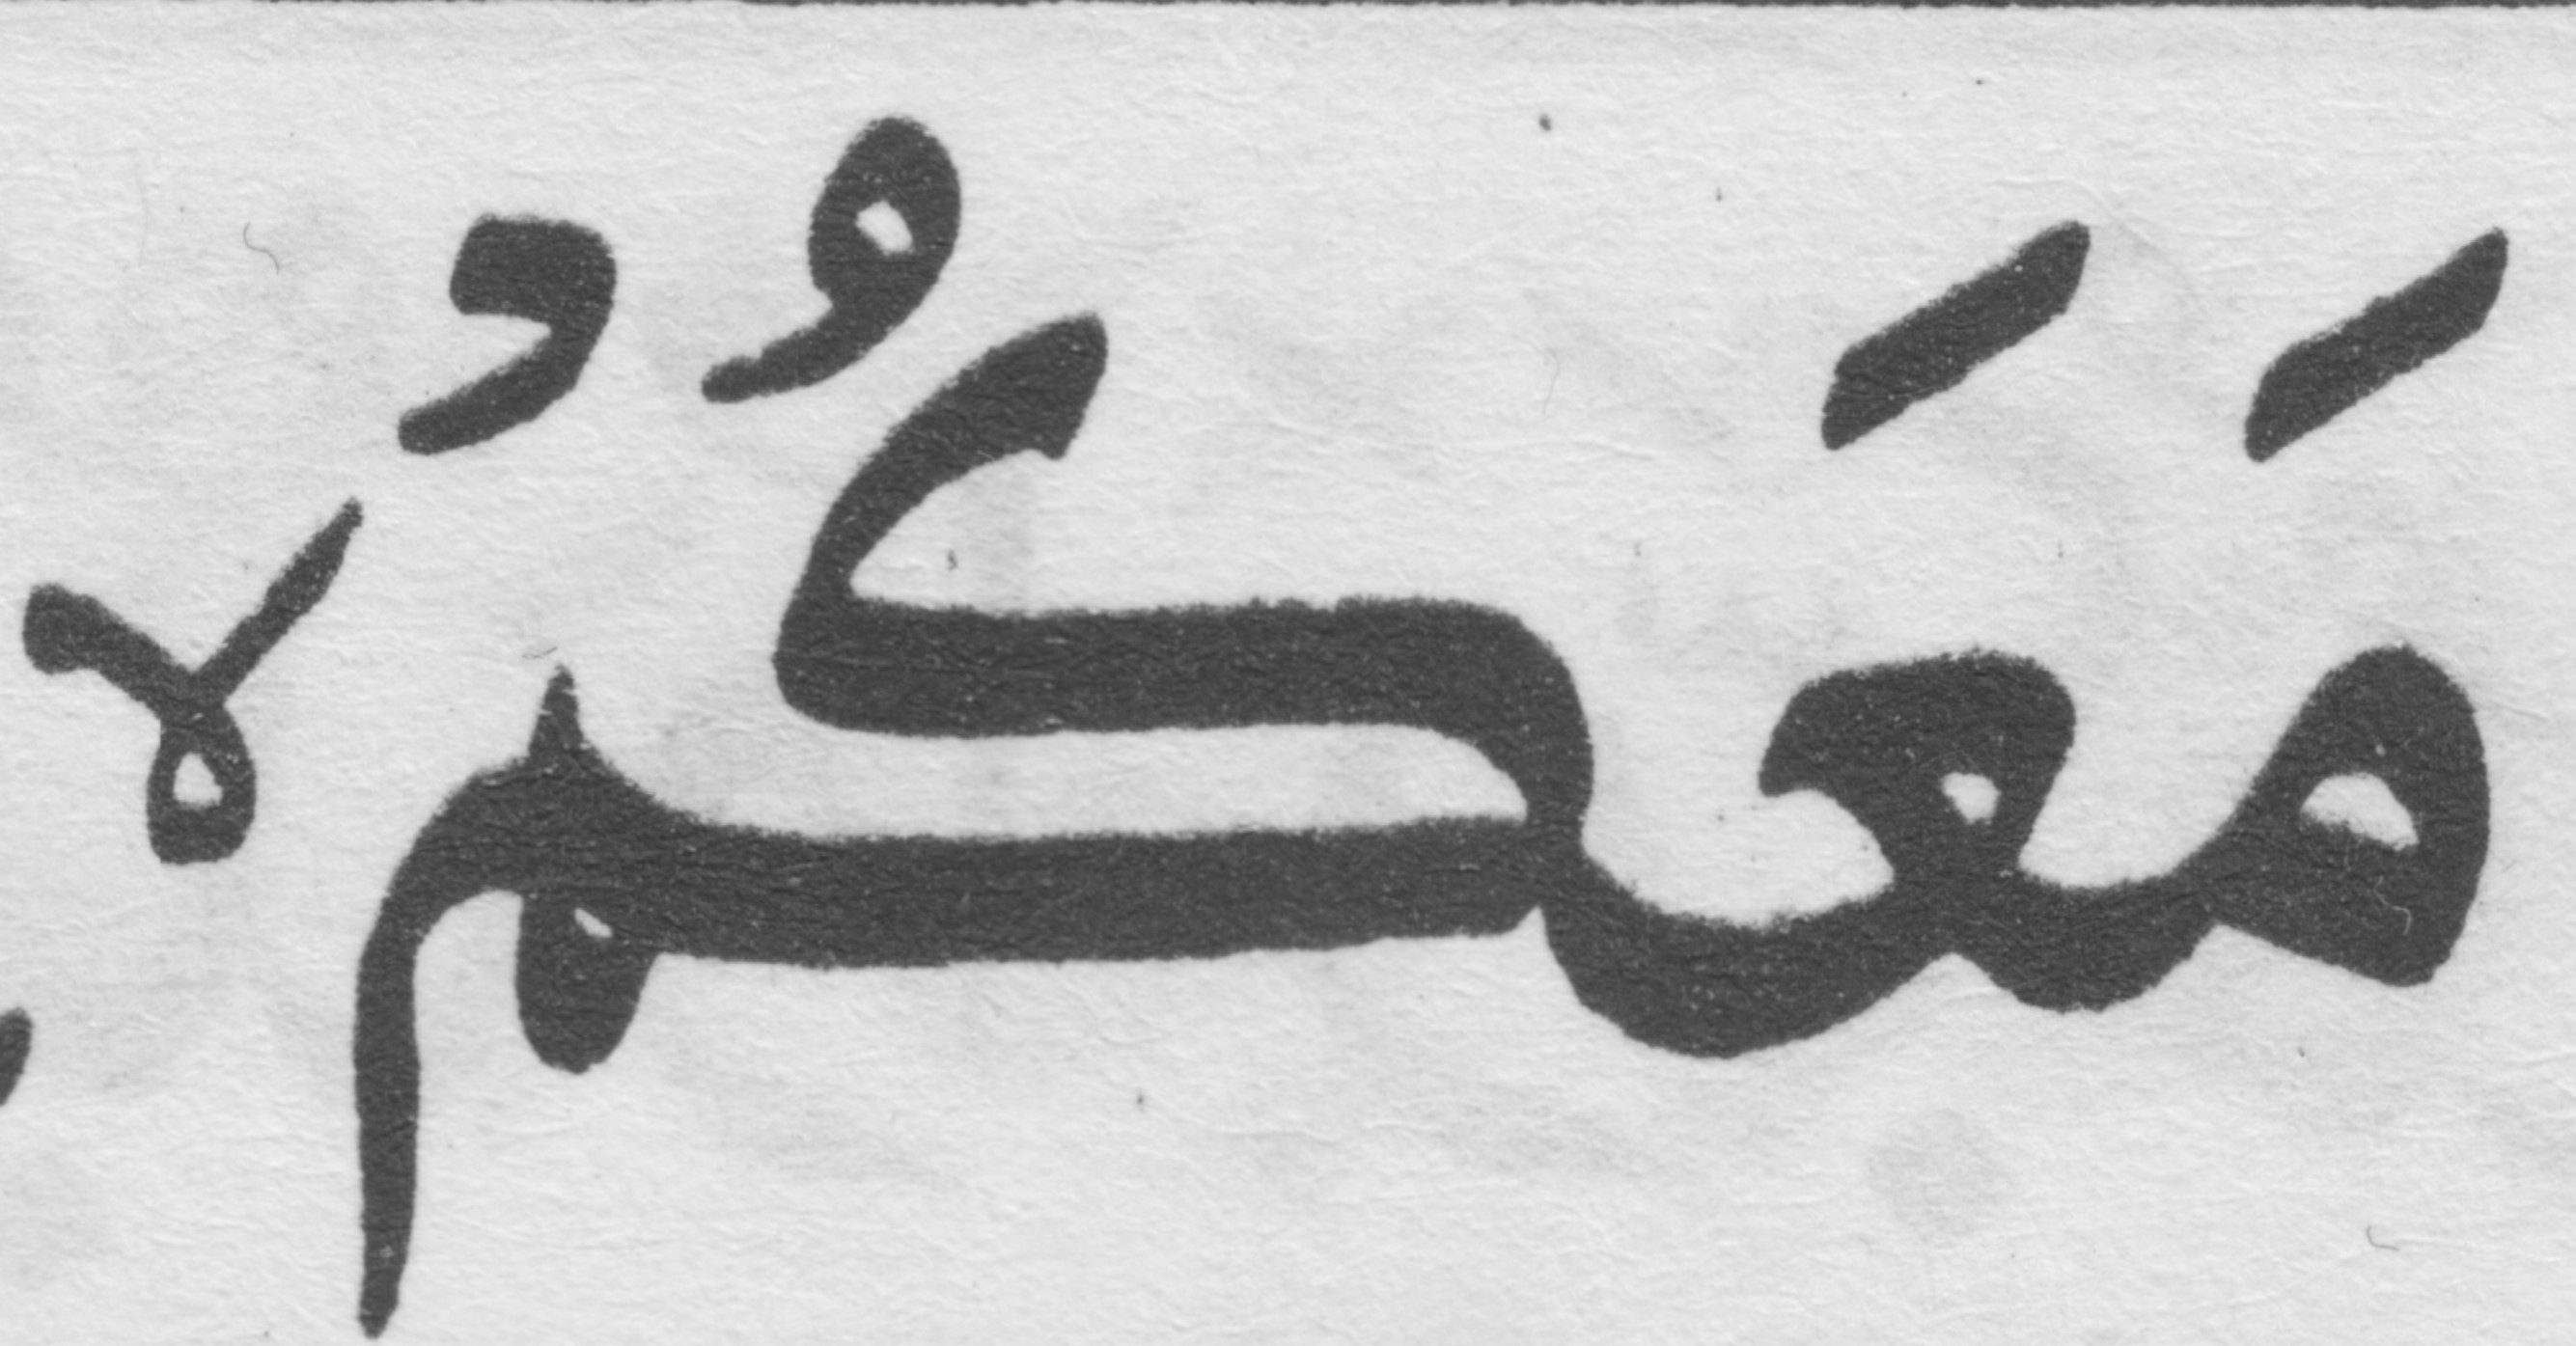 مَعَكُمْ ۙ